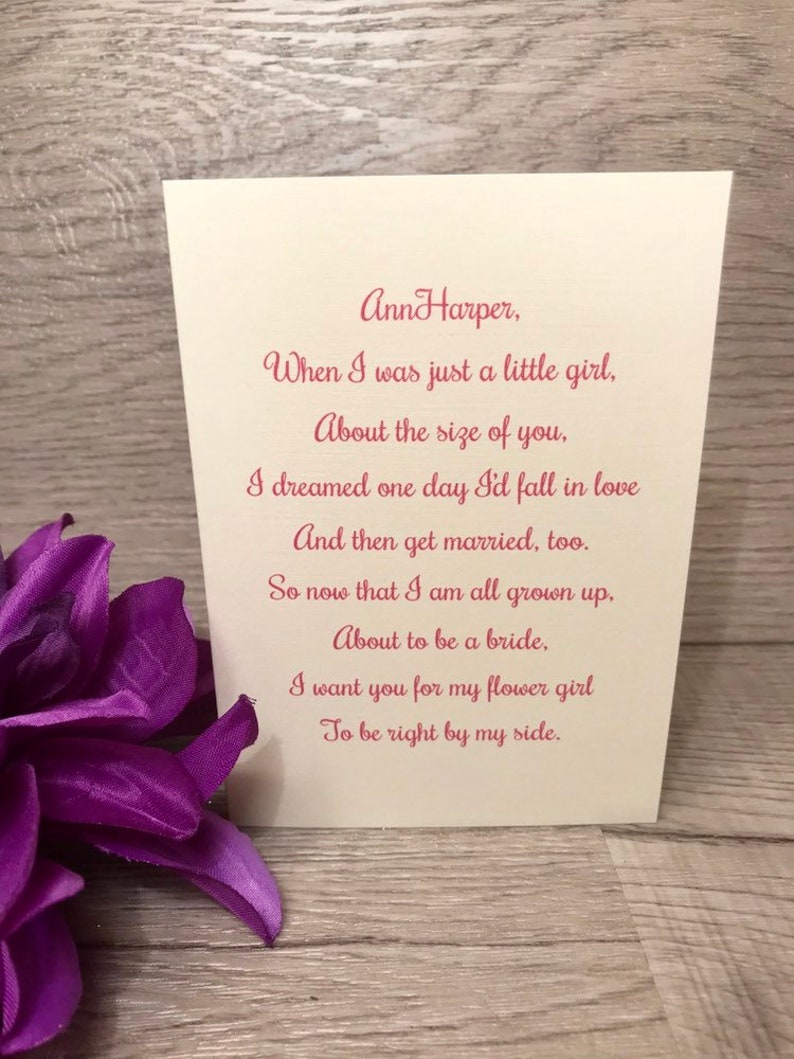 AnnHarper,
When I was just a little girl,
About the size of you,
I dreamed one day I'd fall in love
And then get married, too.
So now that I am all grown up,
About to be a bride,
I want you for my flower girl
To be right by my side.